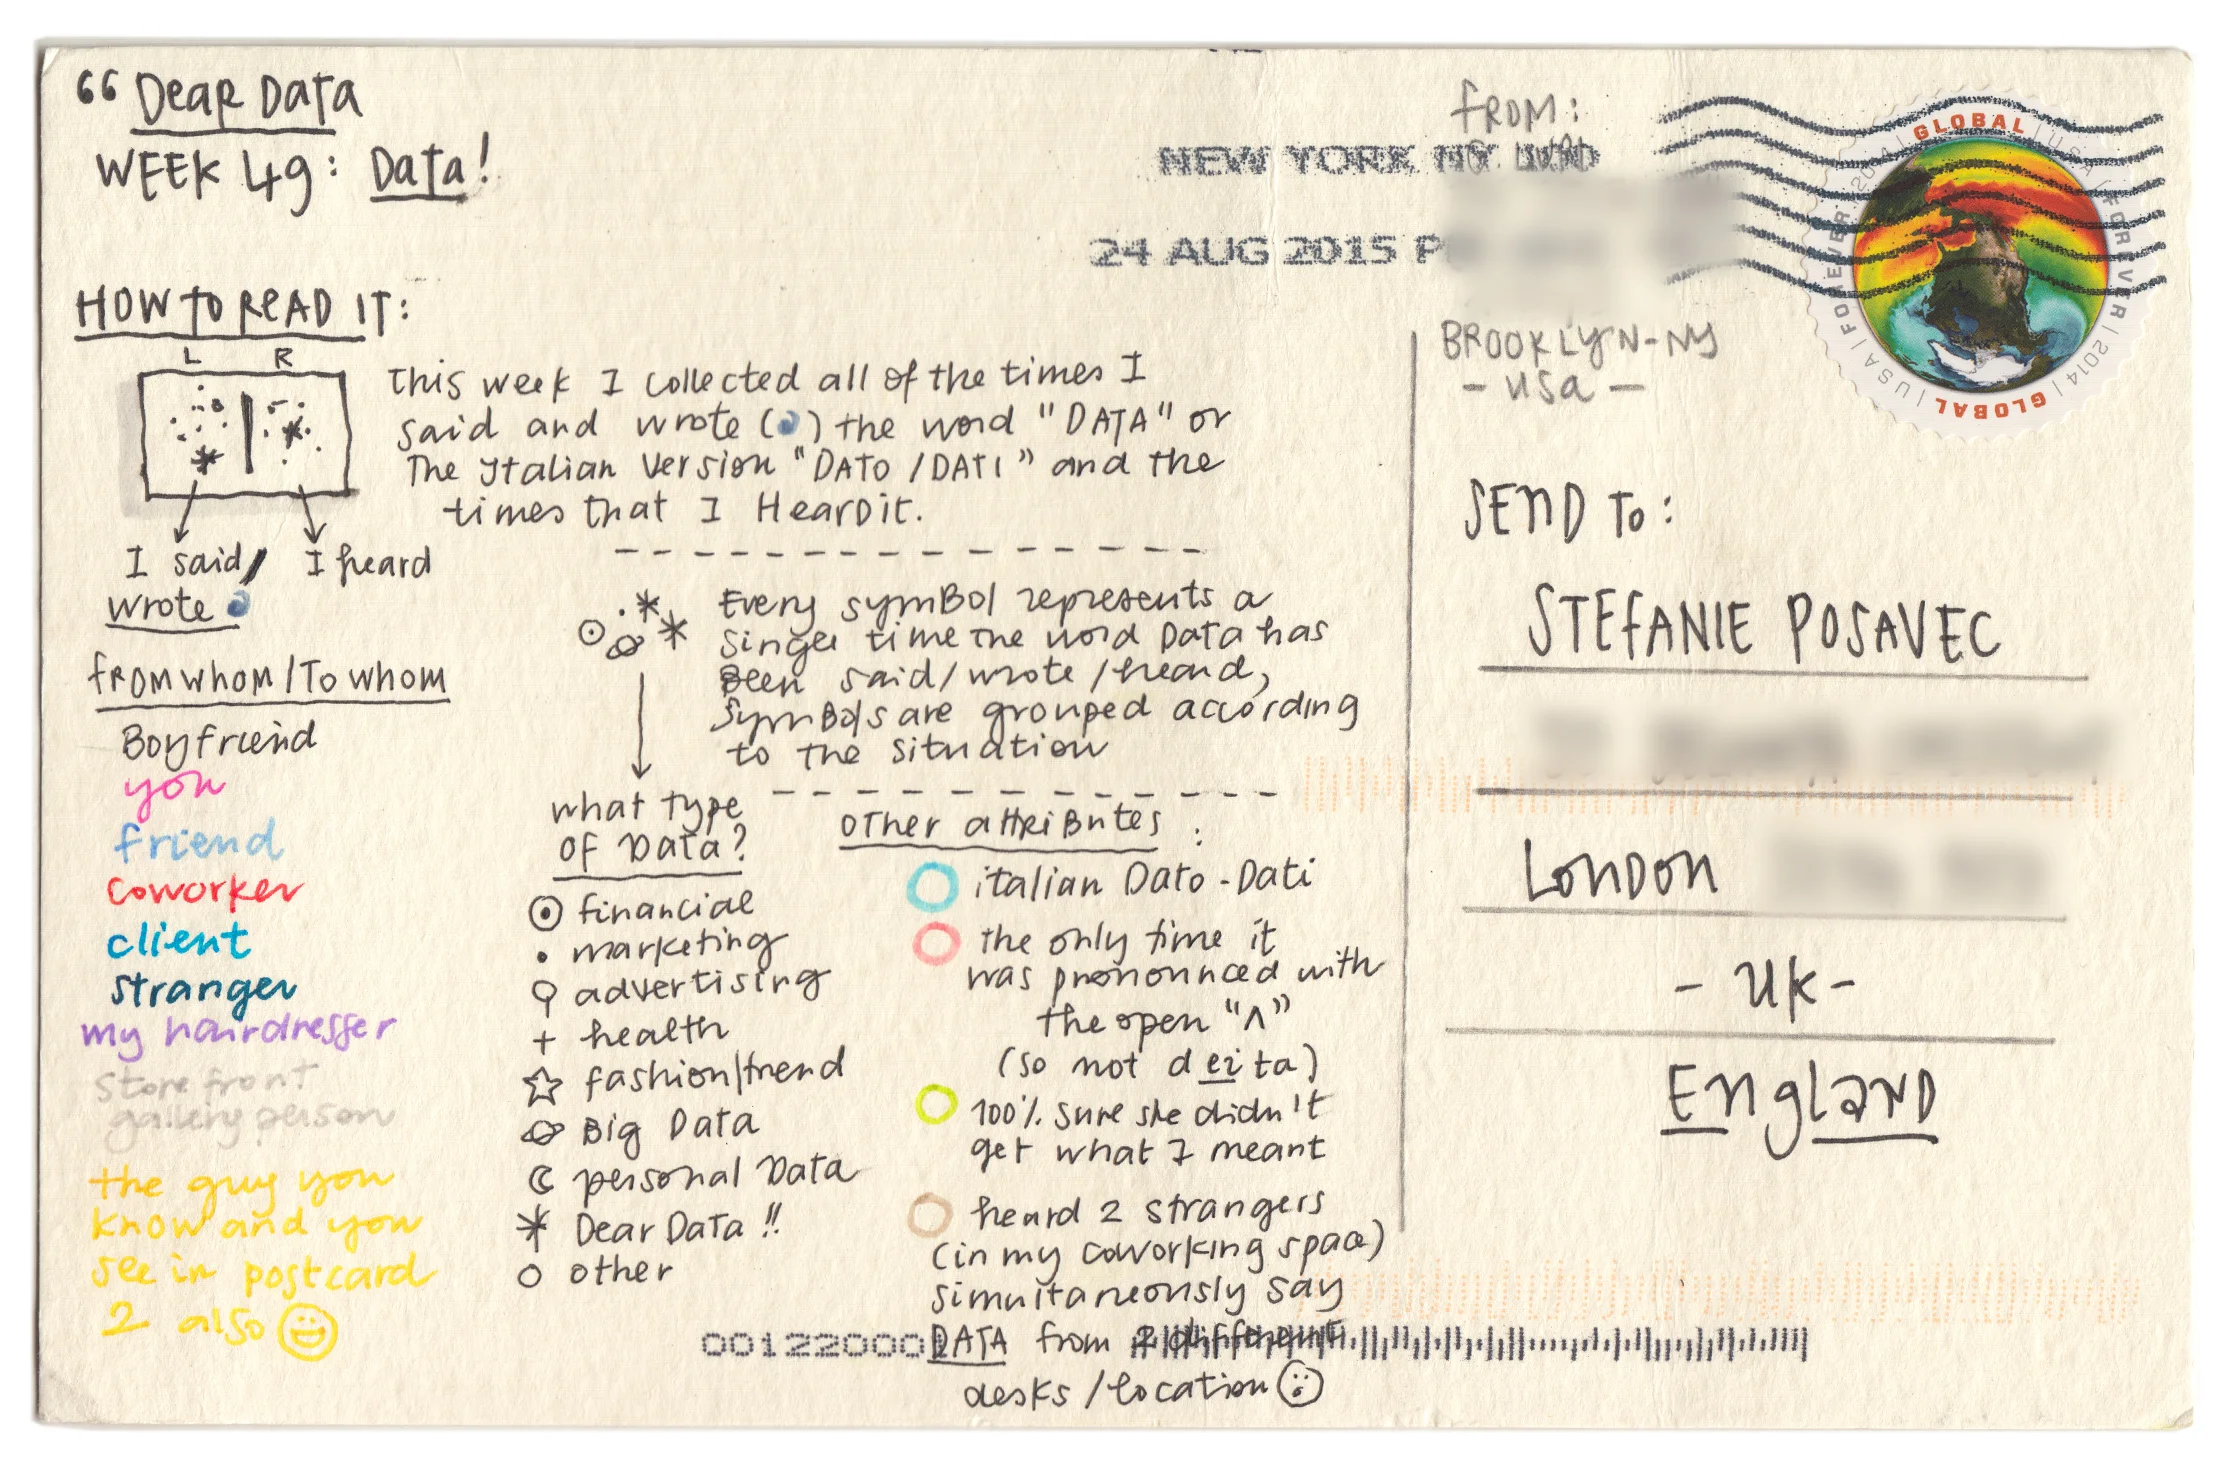 “ Dear Data
WEEK 49: Data!
HOW TO READ IT:
L R
I said/ I heard
wrote
This week I collected all of the times I
said and wrote ( ) the word "DATA" or
The Italian version "DATO/DATI" and the
times that I Heard it.
from whom/To whom
Boyfriend
you
friend
coworker
client
stranger
my hairdresser
store front
gallery person
the guy you
know and you
see in postcard
2 also
Every symBol represents a
singel time the word Data has
Been said/wrote/heard,
symBols are grouped according
to the situation
what type
OF Data?
financial
marketing
advertising
health
fashion/trend
Big Data
personal Data
Dear Data !!
other
other attriButes :
italian Dato-Dati
the only time it
was pronounced with
the open "Λ"
(so not deita)
100% sure she didn't
get what I meant
heard 2 strangers
(in my coworking space)
simultaneously say
DATA from 2 different
desks/location
NEW YORK NY
24 AUG 2015 P
from:
BROOKLYN-NY
- USA -
SEND To:
STEFANIE POSAVEC
LONDON
- UK -
England
GLOBAL | USA | FOREVER | 2014 | GLOBAL | USA | FOREVER 2014
00122000